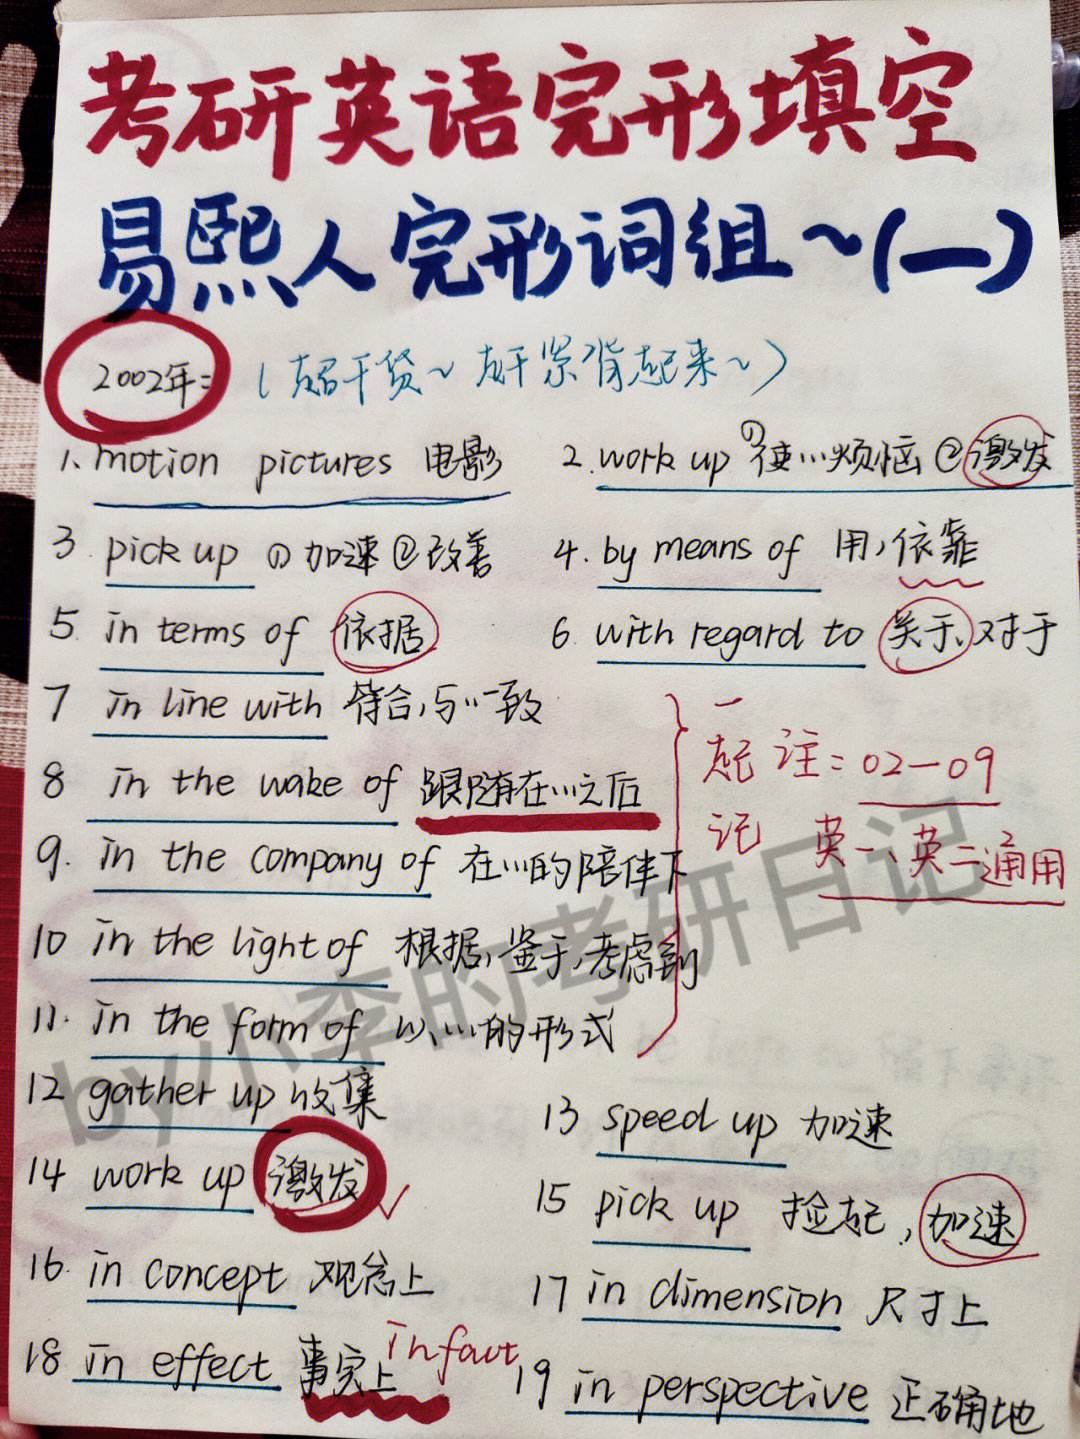 考研英语完形填空
易熙人完形词组~(一)
2002年: (超干货~ 赶紧背起来~)
1. motion pictures 电影 2. work up ①使…烦恼 ②激发
3. pick up ①加速②改善 4. by means of 用,依靠
5. in terms of 依据 6. with regard to 关于、对于
7 in line with 符合,与…一致
8 in the wake of 跟随在…之后
9. in the company of 在…的陪伴下
10 in the light of 根据,鉴于,考虑到
11. in the form of 以…的形式
一起记 注:02—09
英一、英二通用
12 gather up 收集 13 speed up 加速
14 work up 激发 15 pick up 捡起,加速
16. in concept 观念上 17 in dimension 尺寸上
18 in effect 事实上 in fact 19 in perspective 正确地
by小李的考研日记